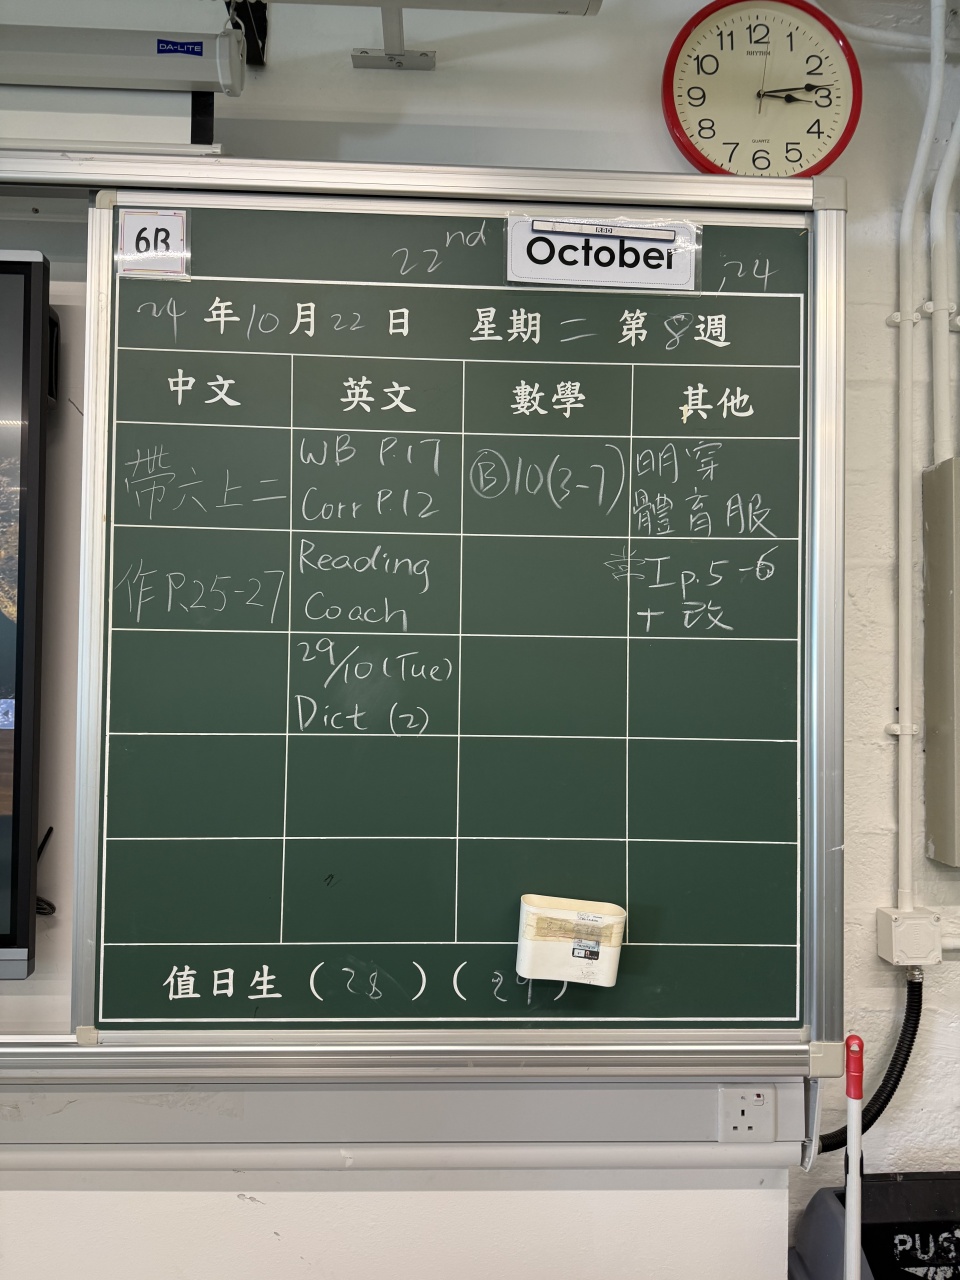 DA-LITE
11 12 1
10 RHYTHM 2
9 3
8 QUARTZ 4
7 6 5
6B
22nd October ,24
24年10月22日 星期二 第8週
中文 英文 數學 其他
帶六上二
WB P.17
Corr P.12
Ⓑ10(3-7)
明穿
體育服
作P.25-27
Reading
Coach
常I p.5-6
+改
29/10(Tue)
Dict (2)
值日生(28)(29)
PUS